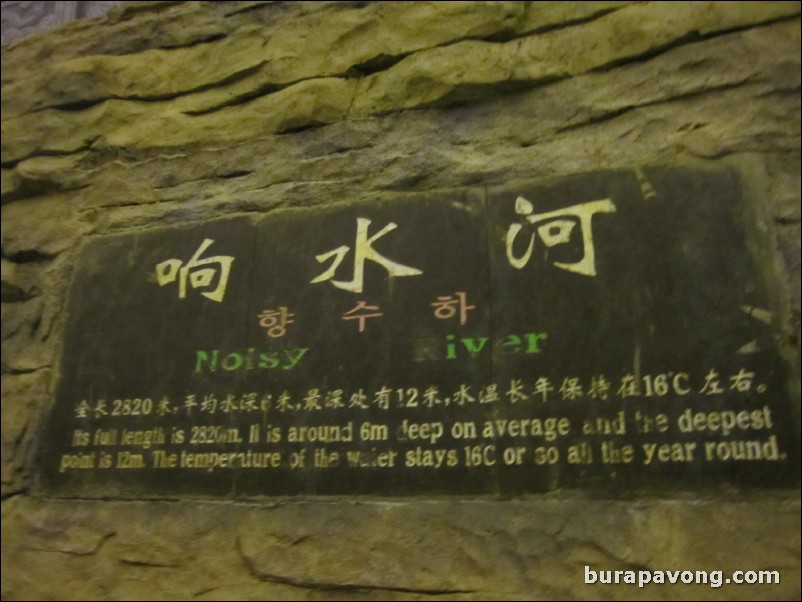 响水河
향수하
Noisy River
全长2820米,平均水深6米,最深处有12米,水温长年保持在16℃左右。
Its full length is 2820m. It is around 6m deep on average and the deepest
point is 12m. The temperature of the water stays 16C or so all the year round.
burapavong.com